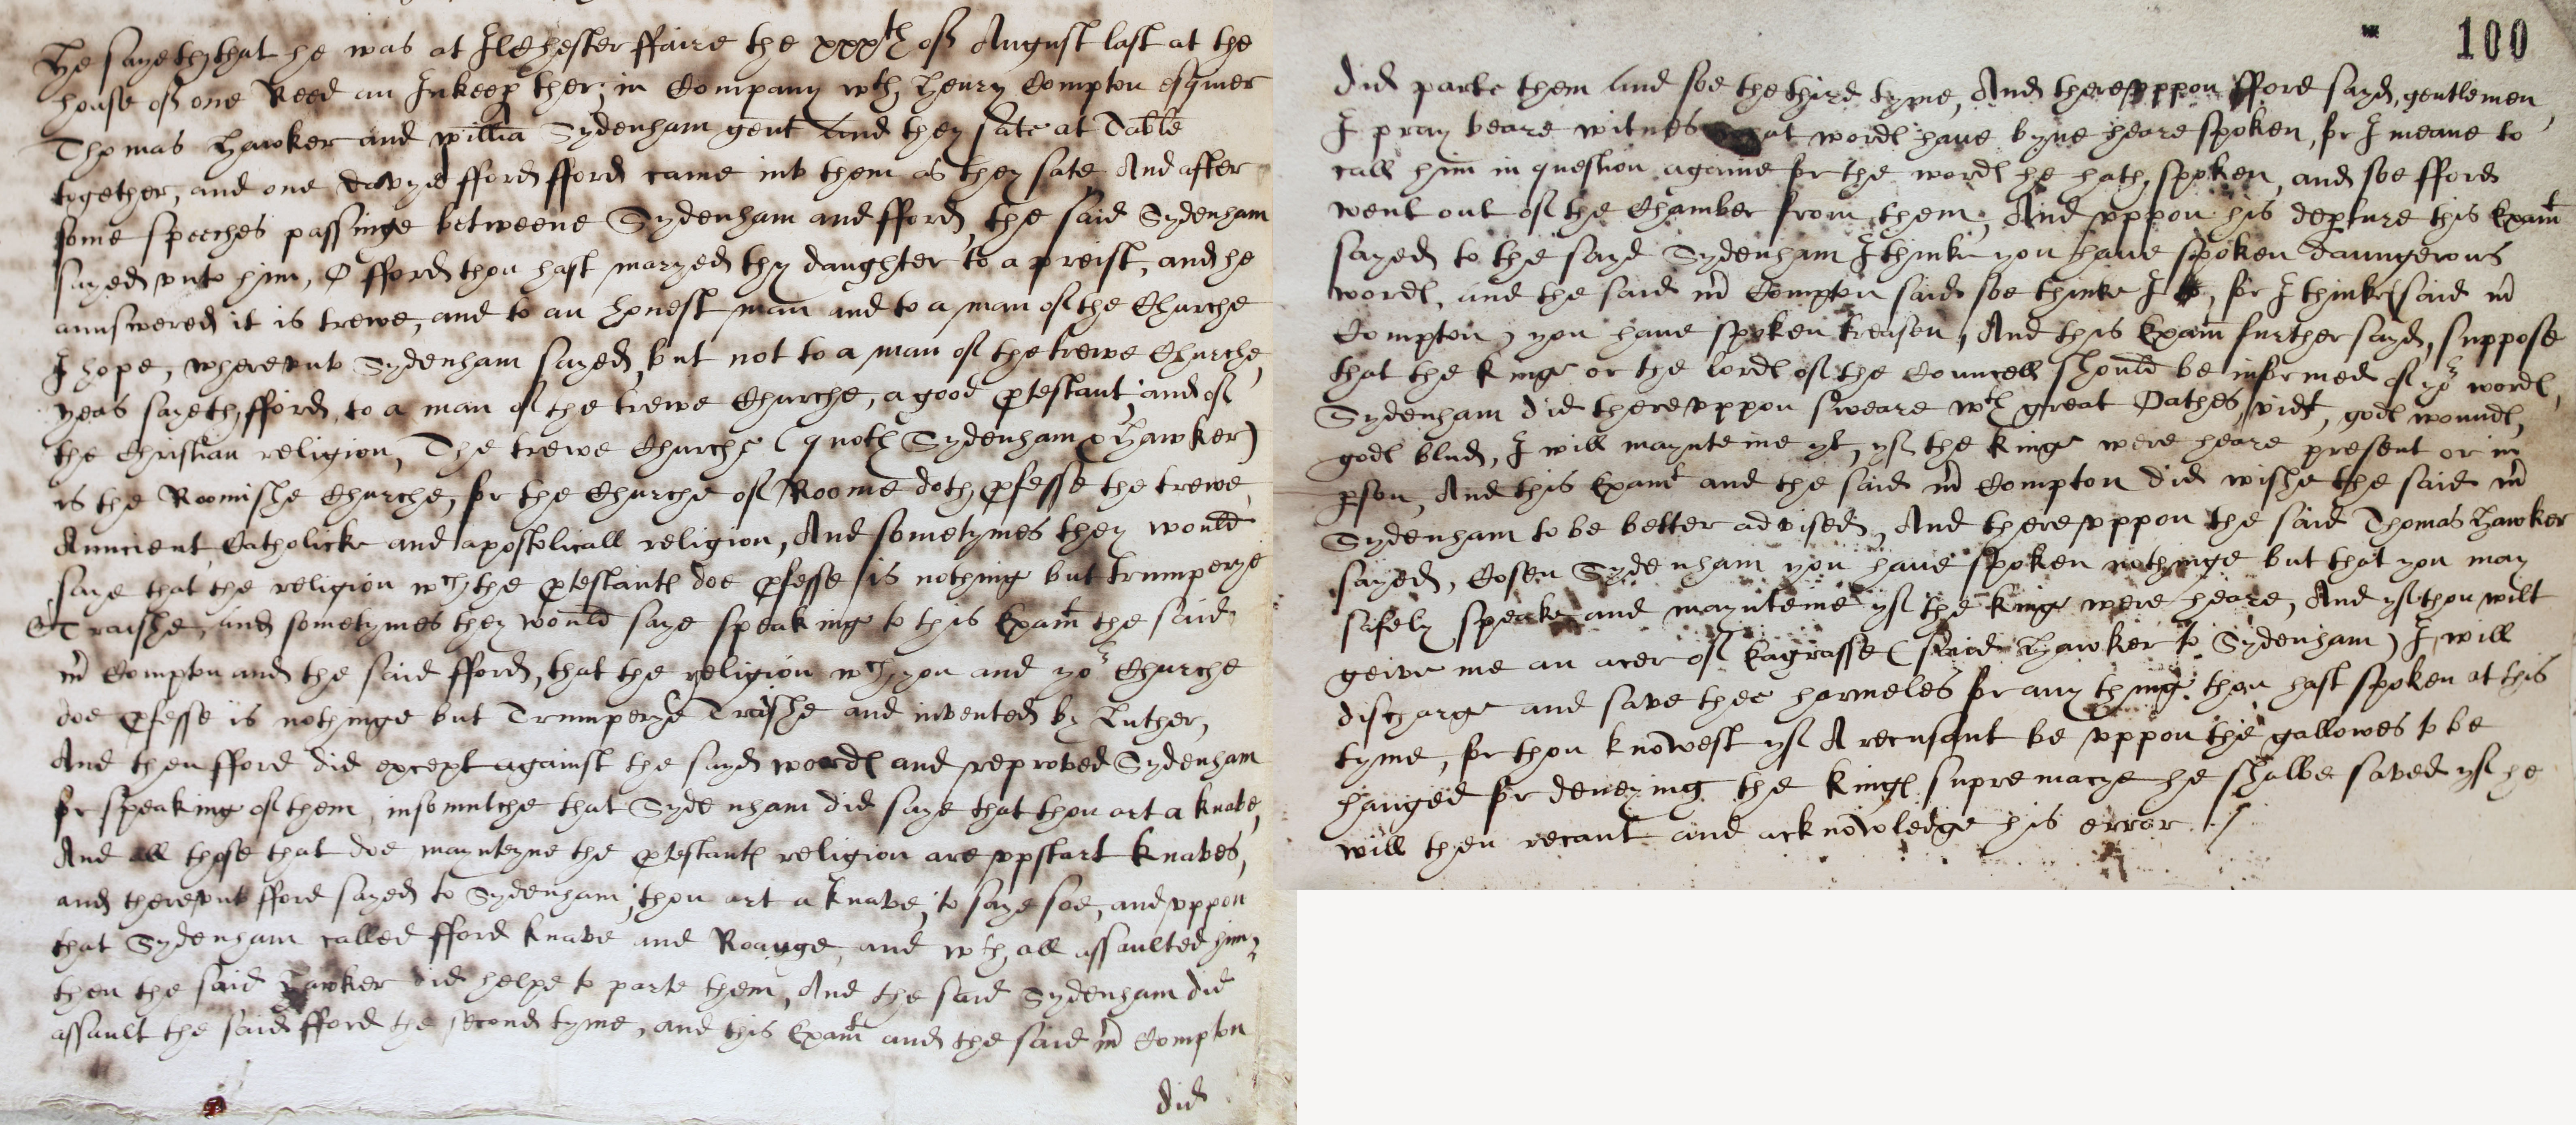 He sayeth that he was at Ilchester ffaire the xxxth of August last at the
house of one Reed an Inkeep ther, in Company wth Henry Compton esquier
Thomas Hawker and willia Sydenham gent And they sate at Table
together, and one davye fford fford came into them as they sate And after
some speeches passinge betweene Sydenham and fford, the said Sydenham
sayed unto him, O fford thou hast maryed thy daughter to a preist, and he
aunswered it is trewe, and to an honest man and to a man of the Churche
I hope, whereunto Sydenham sayed, but not to a man of the trewe Churche,
yeas sayeth fford, to a man of the trewe Churche, a good ptestant, and of
the Christian religion, The trewe Churche (quoth Sydenham & Hawker)
is the Roomishe Churche, for the Churche of Roome doth pfesse the trewe,
Auncient Catholicke and apostolicall religion, And sometymes they would
saye that the religion wch the ptestants doe pfesse is nothing but trumperye
& Traishe, and sometymes they would saye speakinge to this Examt the said
mr Compton and the said fford, that the religion wch you and yor Churche
doe pfesse is nothinge but Trumperye Traishe and invented by Luther,
And then fford did except against the sayd words and reproved Sydenham
for speaking of them, insomutche that Sydenham did saye that thou art a knave,
And all those that doe maynteyne the ptestants religion are vpstart knaves,
and thereunto fford sayed to Sydenham, thou art a knave, to saye soe, and vppon
that Sydenham called fford knave and Roauge, and wth all assaulted him,
then the said Hawker did helpe to parte them, And the said Sydenham did
assault the said fford the second tyme, and this Examt and the said mr Compton
did
100
did parte them and soe the third tyme, And therevppon fford sayd, gentlemen,
I pray beare witnes what words have byne heare spoken, for I meane to
call him in question againe for the words he hath spoken, and soe fford
went out of the Chamber from them, And vppon his depture this Examt
sayed to the sayd Sydenham I thinke you have spoken daungerous
words, and the said mr Compton said soe thinke I, for I thinke (said mr
Compton) you have spoken treason, And this Examt further sayd, suppose
that the kinge or the lords of the Councell should be informed of yor words,
Sydenham did therevppon sweare wth great Oathes, vidt, gods wounds,
gods blud, I will maynteine yt, yf the kinge were heare present or in
pson, And this Examt and the said mr Compton did wishe the said mr
Sydenham to be better advised, And therevppon the said Thomas Hawker
sayed, Cosen Sydenham you have spoken nothinge but that you may
safely speake and maynteine yf the kinge were heare, And yf thou wilt
geive me an acer of Eagrasse (said Hawker to Sydenham) I will
discharge and save thee harmeles for any thing thou hast spoken at this
tyme, for thou knowest yf A recusant be vppon the gallowes to be
hanged for deneying the kings supremacye he shalbe saved yf he
will then recant and acknowledge his error ./